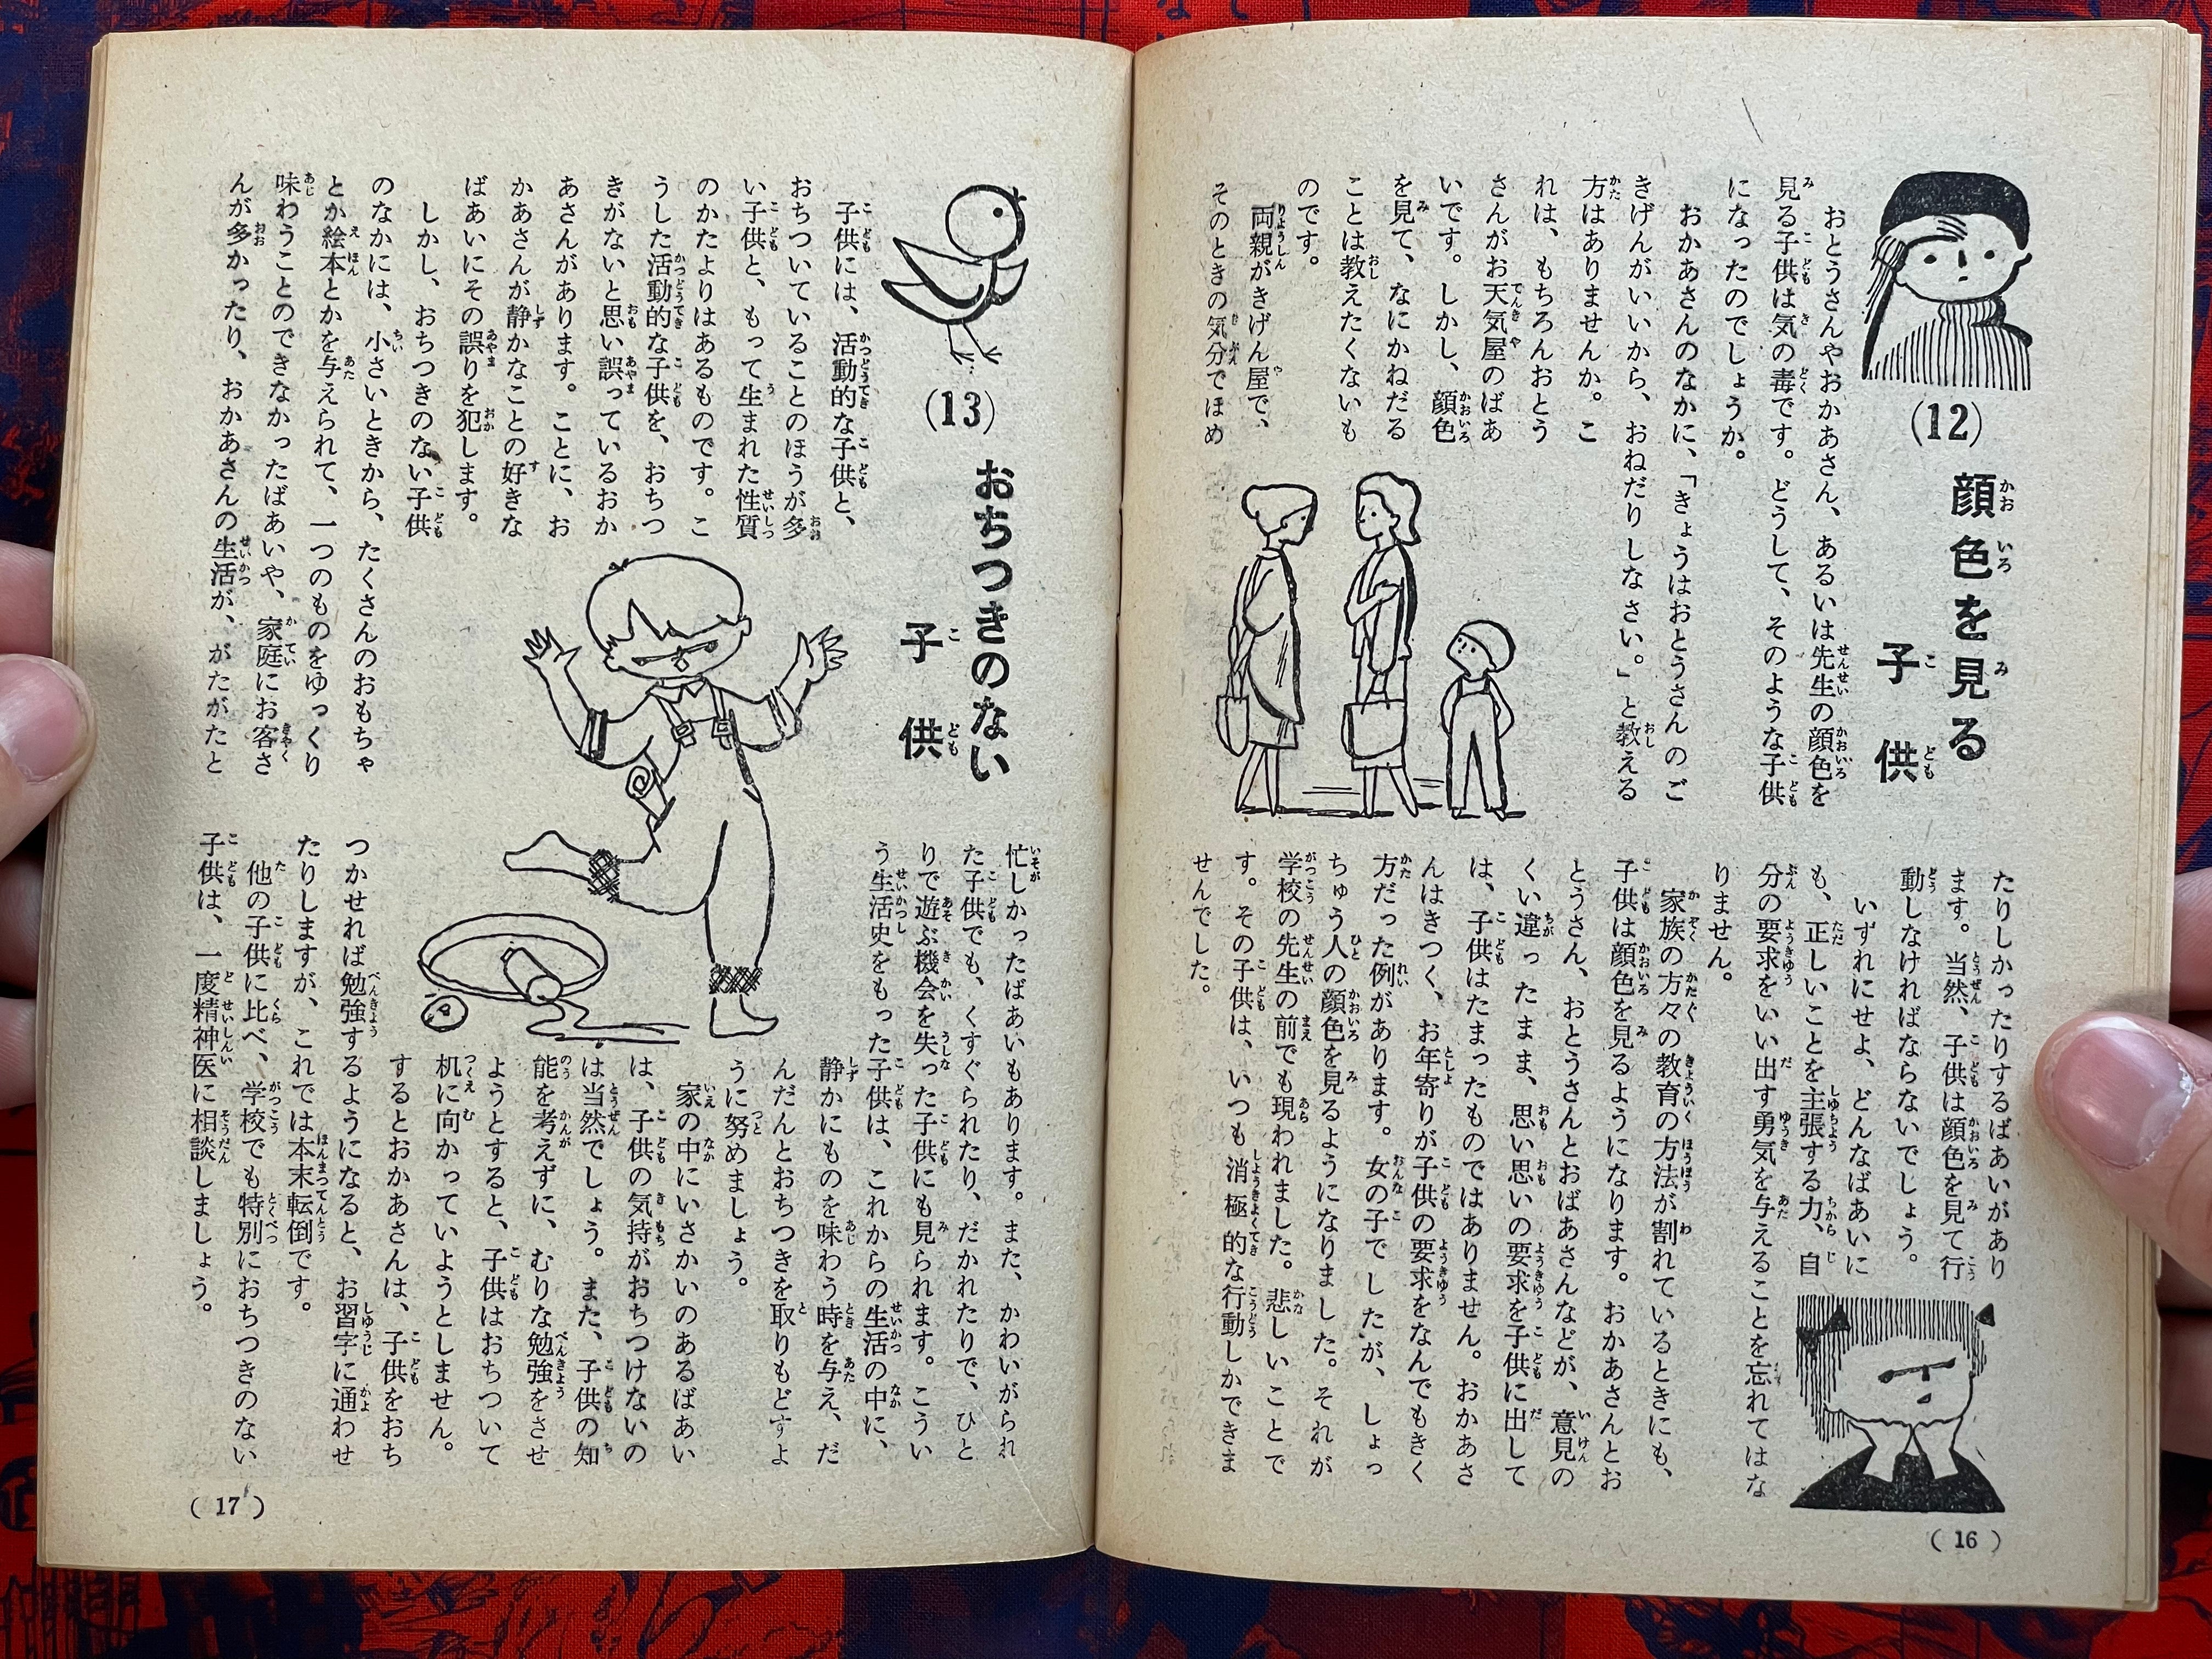 (12) 顔色を見る
子供
おとうさんやおかあさん、あるいは先生の顔色を
見る子供は気の毒です。どうして、そのような子供
になったのでしょうか。
おかあさんのなかに、「きょうはおとうさんのご
きげんがいいから、おねだりしなさい。」と教える
方はありませんか。こ
れは、もちろんおとう
さんがお天気屋のばあ
いです。しかし、顔色
を見て、なにかねだる
ことは教えたくないも
のです。
両親がきげん屋で、
そのときの気分でほめ
たりしかったりするばあいがあり
ます。当然、子供は顔色を見て行
動しなければならないでしょう。
いずれにせよ、どんなばあいに
も、正しいことを主張する力、自
分の要求をいい出す勇気を与えることを忘れてはな
りません。
家族の方々の教育の方法が割れているときにも、
子供は顔色を見るようになります。おかあさんとお
とうさん、おとうさんとおばあさんなどが、意見の
くい違ったまま、思い思いの要求を子供に出して
は、子供はたまったものではありません。おかあさ
んはきつく、お年寄りが子供の要求をなんでもきく
方だった例があります。女の子でしたが、しょっ
ちゅう人の顔色を見るようになりました。それが
学校の先生の前でも現われました。悲しいことで
す。その子供は、いつも消極的な行動しかできま
せんでした。
(16)
(13) おちつきのない
子供
子供には、活動的な子供と、
おちついていることのほうが多
い子供と、もって生まれた性質
のかたよりはあるものです。こ
うした活動的な子供を、おちつ
きがないと思い誤っているおか
あさんがあります。ことに、お
かあさんが静かなことの好きな
ばあいにその誤りを犯します。
しかし、おちつきのない子供
のなかには、小さいときから、たくさんのおもちゃ
とか絵本とかを与えられて、一つのものをゆっくり
味わうことのできなかったばあいや、家庭にお客さ
んが多かったり、おかあさんの生活が、がたがたと
忙しかったばあいもあります。また、かわいがられ
た子供でも、くすぐられたり、だかれたりで、ひと
りで遊ぶ機会を失った子供にも見られます。こうい
う生活史をもった子供は、これからの生活の中に、
静かにものを味わう時を与え、だ
んだんとおちつきを取りもどすよ
うに努めましょう。
家の中にいさかいのあるばあい
は、子供の気持がおちつけないの
は当然でしょう。また、子供の知
能を考えずに、むりな勉強をさせ
ようとすると、子供はおちついて
机に向かっていようとしません。
するとおかあさんは、子供をおち
つかせれば勉強するようになると、お習字に通わせ
たりしますが、これでは本末転倒です。
他の子供に比べ、学校でも特別におちつきのない
子供は、一度精神医に相談しましょう。
(17)